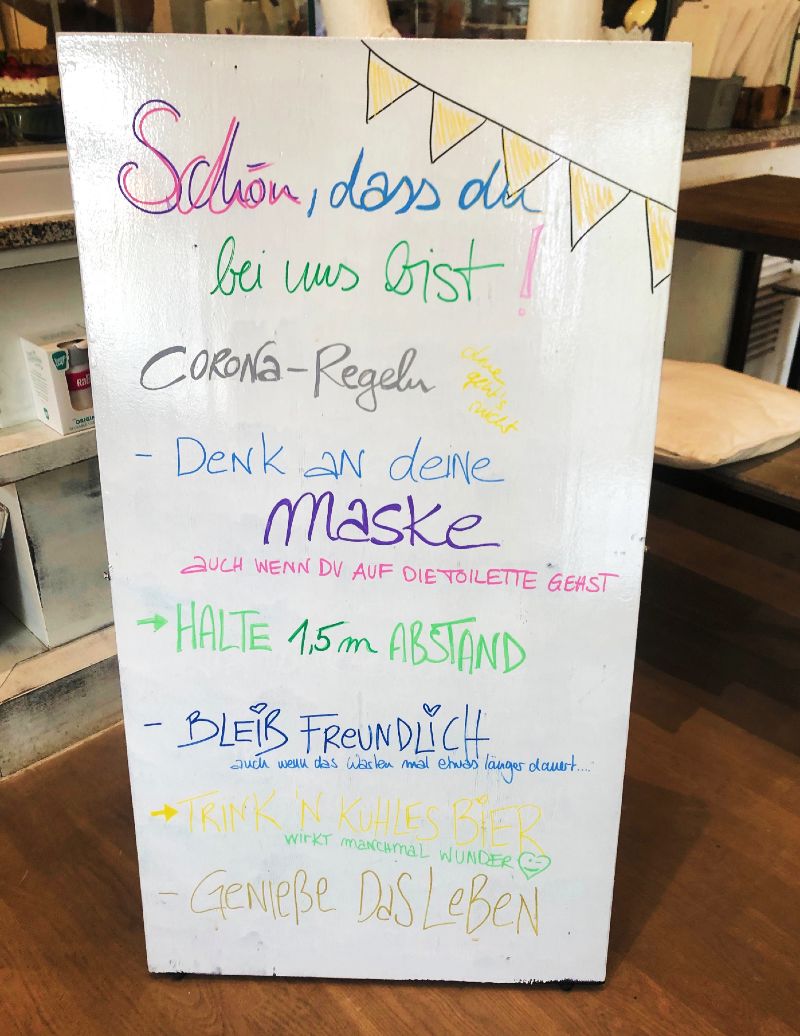 Schön, dass du
bei uns bist!
CORONA-Regeln
ohne
geht's
nicht
- DENK AN deine
maske
AUCH WENN DU AUF DIE TOILETTE GEHST
→ HALTE 1,5m ABSTAND
- BLEIB FREUNDLICH
auch wenn das Warten mal etwas länger dauert....
→ TRINK 'N KUHLES BIER
WIRKT MANCHMAL WUNDER
- GENIEßE DAS LEBEN